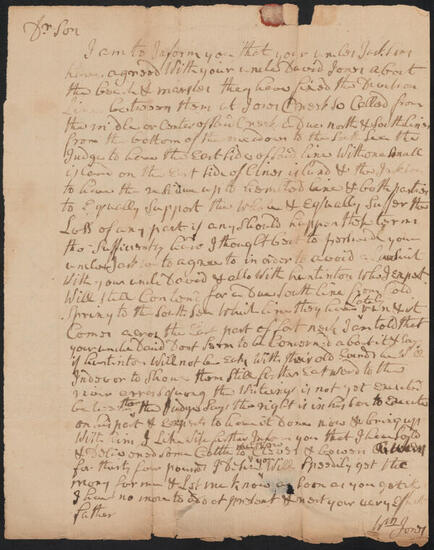 Dr Son
I am to Inform you that your unles Jackson
have agreed With your uncle David Jones about
the beach & marshes they have fixed the Devision
Line between them at Jones Creek so Called from
the midle or Center of Said Creek a due north & south Line
from the bottom of the meadow to the South Sea the
Judge to have the East Side of Said line With one small
Island on the East Side of island & the Jacksons
to have the up to line & both parties
to Equally support the Whole & Equally Suffer the
Loss of any part if any Should happen these terms
tho I thought best to perswade your
unles Jackson to agree to in order to avoid a
With your uncle David & also With huntinton Who I expect
Will Still Contend for a Due South line from Cold
Spring to the South Sea Which line they have Lately run & it
Comes across the East part of fort neck I am told that
your uncle David Dont Seem to be Concerned about it & Says
if huntinton Will not be easy With their old bounds he Will
Indevor to Shove them Still farther Eastward to the
the is not yet Executed
the Judge Says the right is in his to Execute
on his part & Expects to have it done now & bring up
With him I Like Wise further Inform you that I have Sold
& Delivered some Cattle to & Cowen
for thirty four pounds I beleive you Will Speedily get the
mony for me & Let me know as Soon as you get it
I have no more to add at present & rest your very
father
Wm Jones